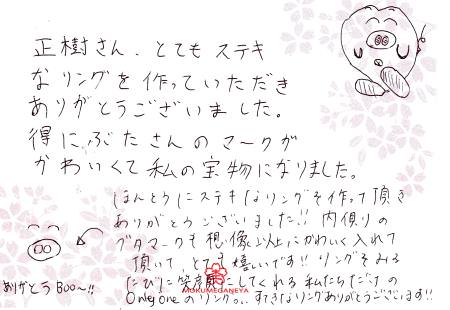 正樹さん、とても ステキ
な リングを 作って いただき
ありがとうございました。
得に ぶたさんの マークが
かわいくて 私の 宝物に なりました。
ほんとうに ステキな リングを 作って 頂き
ありがとうございました!! 内側りの
ブタマークも 想像以上に かわいく 入れて
頂いて、とても 嬉しいです!! リングをみる
たびに 笑顔に してくれる 私たちだけの
Only Oneの リング。すてきなリングありがとうございます!!
ありがとう Boo〜!!
MOKUMEGANEYA